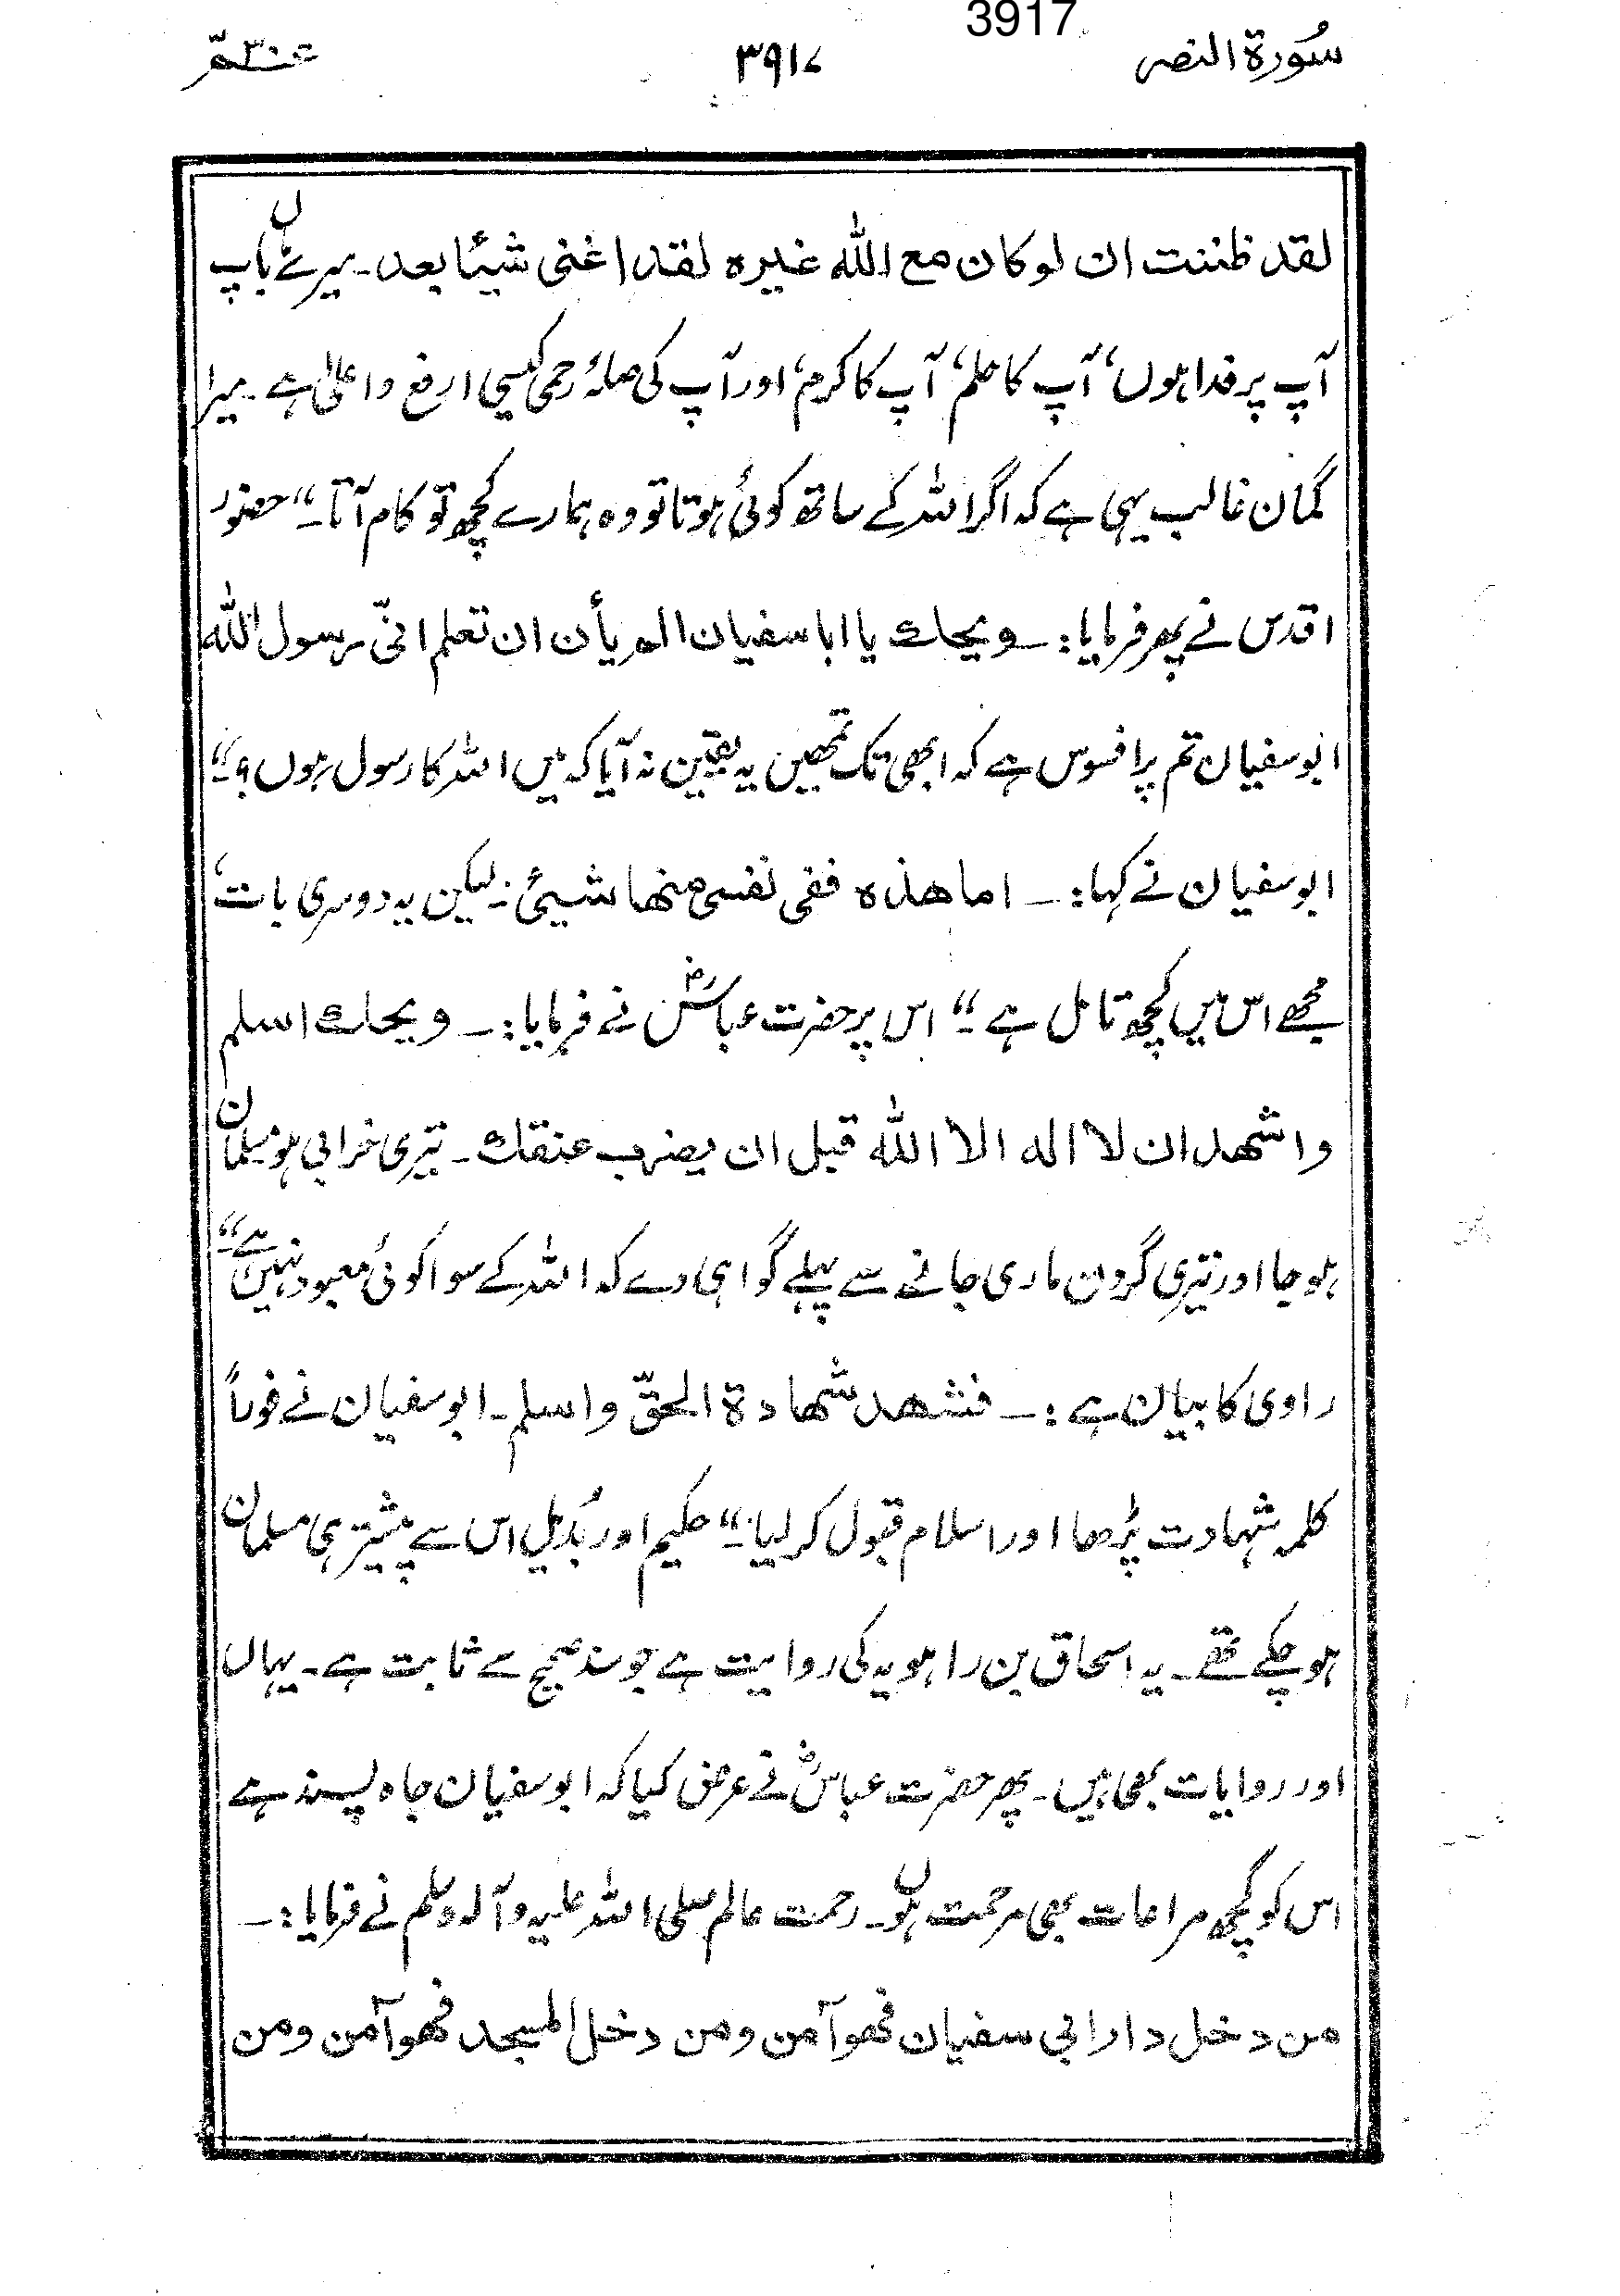 3917
سُورۃ النصر ۳۹۱۷ عمّ ۳۰
لقد ظننت ان لو کان مع اللہ غیرہ لقد اغنی شیئا بعد۔ میرے ماں باپ
آپ پر فدا ہوں، آپ کا حلم، آپ کا کرم، اور آپ کی صلۂ رحمی کیسی ارفع و اعلیٰ ہے۔ میرا
گمان غالب یہی ہے کہ اگر اللہ کے ساتھ کوئی ہوتا تو وہ ہمارے کچھ تو کام آتا۔“ حضور
اقدس نے پھر فرمایا:۔ ویحك یا ابا سفیان الم یأن ان تعلم انّی رسول اللہ
ابوسفیان تم پر افسوس ہے کہ ابھی تک تمھیں یہ یقین نہ آیا کہ میں اللہ کا رسول ہوں؟“
ابوسفیان نے کہا:۔ اما ھذہ ففی نفسی منھا شیئ:۔ لیکن یہ دوسری بات،
مجھے اس میں کچھ تامل ہے۔“ اس پر حضرت عباسؓ نے فرمایا:۔ ویحك اسلم
واشھد ان لا الہ الا اللہ قبل ان یضرب عنقك۔ تیری خرابی ہو مسلمان
ہو جا اور تیری گردن ماری جانے سے پہلے گواہی دے کہ اللہ کے سوا کوئی معبود نہیں ہے“
راوی کا بیان ہے:۔ فشھد شھادۃ الحقّ واسلم۔ ابوسفیان نے فوراً
کلمہ شہادت پڑھا اور اسلام قبول کر لیا۔“ حکیم اور بُدیل اس سے پیشتر ہی مسلمان
ہو چکے تھے۔ یہ اسحاق بن راہویہ کی روایت ہے جو سند صحیح سے ثابت ہے۔ یہاں
اور روایات بھی ہیں۔ پھر حضرت عباسؓ نے عرض کیا کہ ابوسفیان جاہ پسند ہے
اس کو کچھ مراعات بھی مرحمت ہوں۔ رحمت عالم صلی اللہ علیہ وآلہ وسلم نے فرمایا:۔
من دخل دار ابی سفیان فھو آمن ومن دخل المسجد فھو آمن ومن